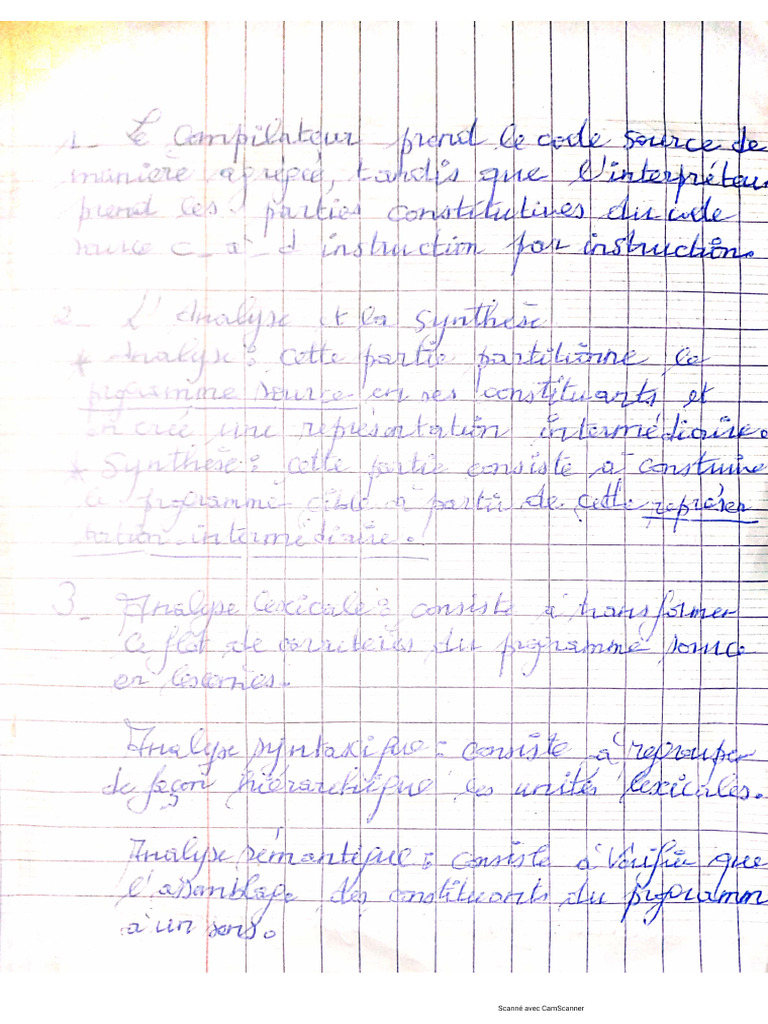 1_ Le Compilateur prend le code source de
manière agrégé, tandis que l'interpréteur
prend les parties constitutives du code
source c_à_d instruction par instruction.
2_ L'Analyse et la Synthèse
* Analyse : cette partie partitionne le
programme source en ses constituants et
en crée une représentation intermédiaire.
* Synthèse : cette partie consiste à construire
le programme cible à partir de cette représen
tation intermédiaire.
3_ Analyse lexicale : consiste à transformer
le flot de caractères du programme source
en lexèmes.
Analyse syntaxique : consiste à regrouper
de façon hiérarchique les unités lexicales.
Analyse sémantique : consiste à vérifier que
l'assemblage des constituants du programm
a un sens.
Scanné avec CamScanner